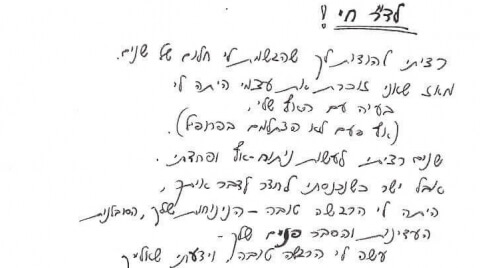 לד"ר חי !
רציתי להודות לך שהגשמת לי חלום של שנים.
מאז שאני זוכרת את עצמי היתה לי
בעיה עם האף שלי,
(אף פעם לא הצתלמתי בפרופיל).
שנים רציתי לעשות ניתוח-אף ופחדתי.
אבל ישר כשנכנסתי לחדר לדבר איתך,
היתה לי הרגשה טובה - הנינוחות שלך, הסובלנות
העדינות והסבר פנים שלך -
עשה לי הרגשה טובה, וידעתי שאליך